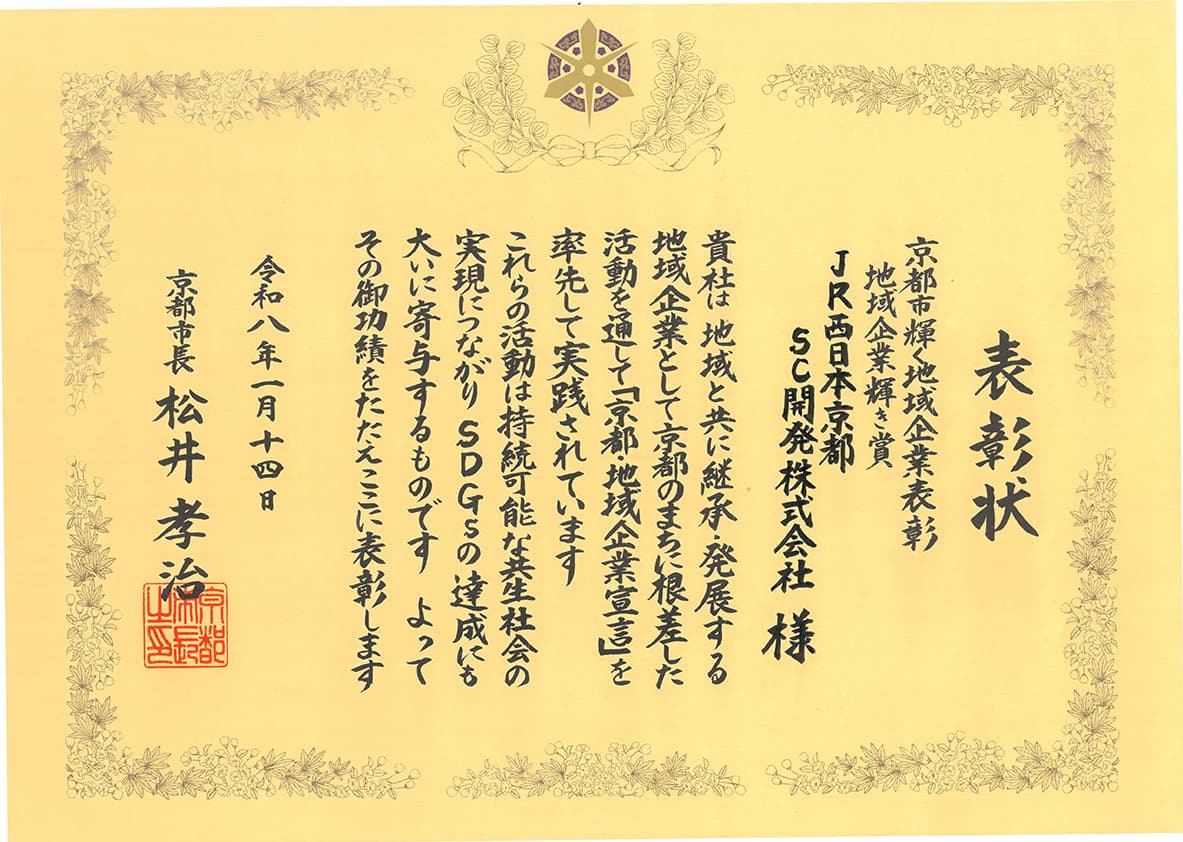 表彰状
京都市輝く地域企業表彰
地域企業輝き賞
JR西日本京都
SC開発株式会社 様
貴社は 地域と共に継承・発展する
地域企業として京都のまちに根差した
活動を通して「京都・地域企業宣言」を
率先して実践されています
これらの活動は持続可能な共生社会の
実現につながり SDGsの達成にも
大いに寄与するものです よって
その御功績をたたえここに表彰します
令和八年一月十四日
京都市長 松井孝治
京都市長之印